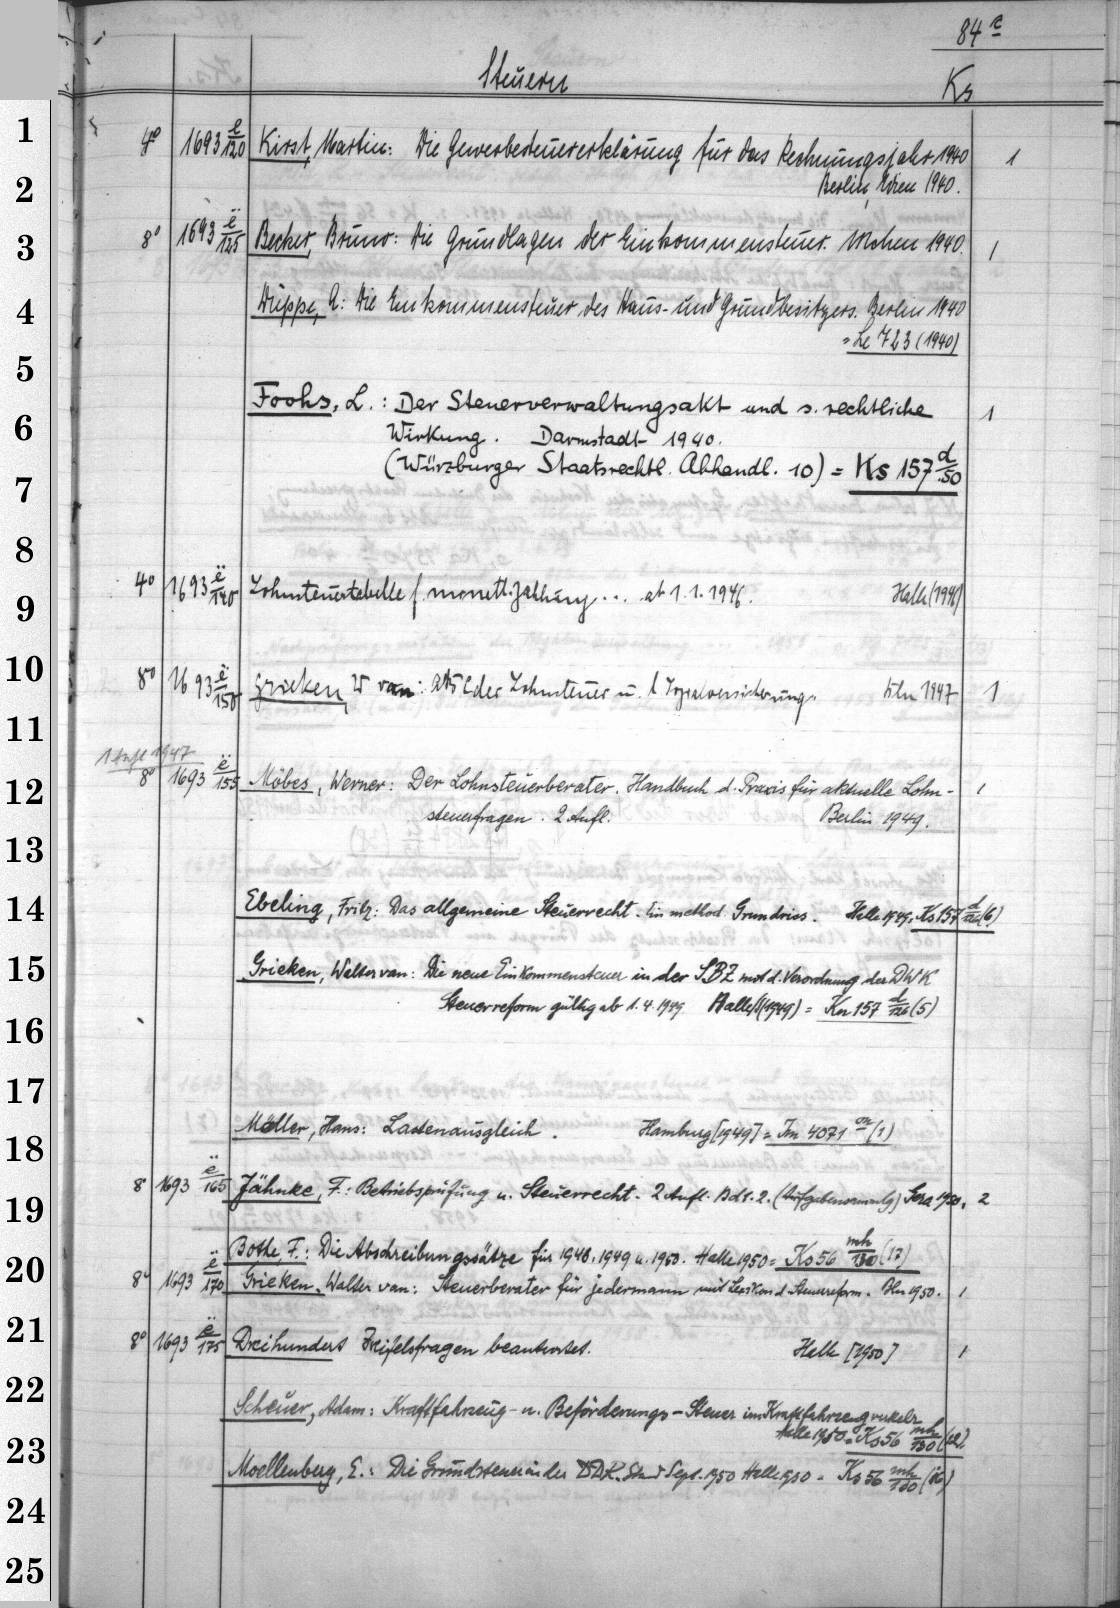 84 r
Steuern Ks
1
4° 1693 ë/120 Kirst, Martin: Die Gewerbesteuererklärung für das Rechnungsjahr 1940 1
2
Berlin, Wien 1940.
3
8° 1693 ë/125 Becker, Bruno: Die Grundlagen der Einkommensteuer. Mchen 1940. 1
4
Düppe, A: Die Einkommensteuer des Haus- und Grundbesitzers. Berlin 1940
= Le 723 (1940)
5
Foohs, L.: Der Steuerverwaltungsakt und s. rechtliche 1
6
Wirkung. Darmstadt 1940.
(Würzburger Staatsrechtl. Abhandl. 10) = Ks 157 d/50
7
8
4° 1693 ë/140 Lohnsteuertabelle f. monatl. Zahlung ... ab 1.1.1946. Halle (1946)
9
10
8° 1693 ë/150 Grieken, W van: der Lohnsteuer u. Sozialversicherung. Köln 1947 1
11
1 Aufl 1947
8° 1693 ë/155 Möbes, Werner: Der Lohnsteuerberater. Handbuch d. Praxis für aktuelle Lohn- 1
12
steuerfragen. 2 Aufl. Berlin 1949.
13
14
Ebeling, Fritz: Das allgemeine Steuerrecht. Ein method. Grundriss. Halle 1949. = Ks 157 d/126 (6)
15
Grieken, Walter van: Die neue Einkommensteuer in der SBZ mit d. Verordnung der DWK
Steuerreform gültig ab 1.4.1949 Halle/S (1949) = Ks 157 d/126 (5)
16
17
Möller, Hans: Lastenausgleich. Hamburg [1949] = Im 4071 (1)
18
8° 1693 ë/165 Jähnke, F.: Betriebsprüfung u. Steuerrecht. 2 Aufl. Bd 1.2. (Aufgabensammlg) Gera 1950. 2
19
Bothe, F.: Die Abschreibungssätze für 1948, 1949 u. 1950. Halle 1950 = Ks 56 mh/130 (17)
20
8° 1693 ë/170 Grieken, Walter van: Steuerberater für jedermann mit Lexikon d. Steuerreform. Bln 1950. 1
21
8° 1693 ë/175 Dreihundert Zweifelsfragen beantwortet. Halle [1950] 1
22
Scheuer, Adam: Kraftfahrzeug- u. Beförderungs-Steuer im Kraftfahrzeugverkehr
Halle 1950 = Ks 56 mh/130
23
Moellenberg, E.: Die Grundsteuer in der DDR. Stand Sept. 1950 Halle 1950 = Ks 56 mh/130
24
25